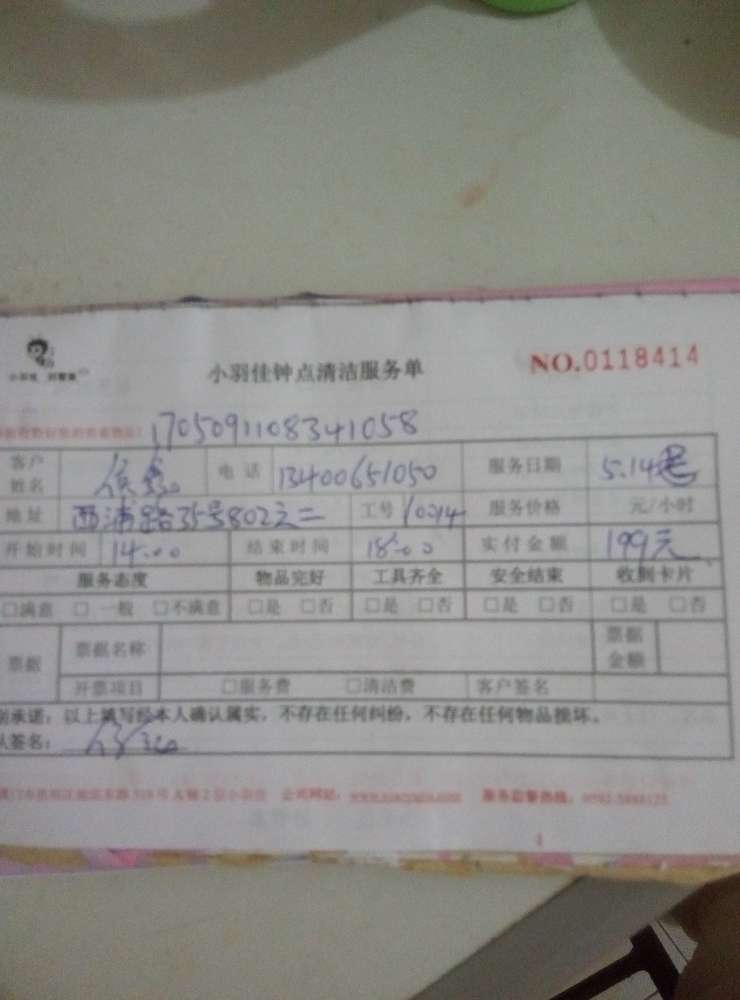 小羽佳钟点清洁服务单 NO.0118414
1705091108341058
客户姓名 电话 13400651050 服务日期 5.14
地址 西浦路35号802之二 工号 10214 服务价格 元/小时
开始时间 14:00 结束时间 18:00 实付金额 199元
服务态度 物品完好 工具齐全 安全结束 收到卡片
□满意 □一般 □不满意 □是 □否 □是 □否 □是 □否 □是 □否
票据 票据名称 票据金额
开票项目 □服务费 □清洁费 客户签名
承诺：以上填写经本人确认属实，不存在任何纠纷，不存在任何物品损坏。
签名：
公司网站： 服务监督热线：